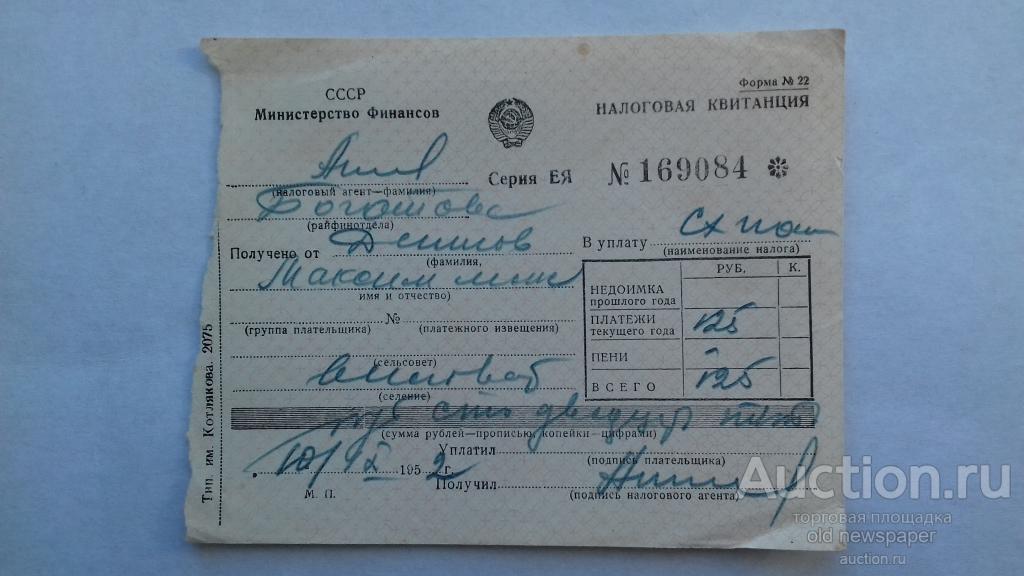 Форма № 22
СССР
Министерство Финансов
НАЛОГОВАЯ КВИТАНЦИЯ
Серия ЕЯ № 169084
(налоговый агент—фамилия)
(райфинотдела)
Получено от Денисов
(фамилия,
Максим
имя и отчество)
В уплату
(наименование налога)
РУБ. К.
НЕДОИМКА прошлого года
ПЛАТЕЖИ текущего года 125
ПЕНИ
ВСЕГО 125
№
(группа плательщика) (платежного извещения)
(сельсовет)
(селение)
руб сто двадцать пять
(сумма рублей—прописью, копейки—цифрами)
Уплатил
(подпись плательщика)
10/IX 1952 г.
Получил
(подпись налогового агента)
М. П.
Тип. им. Котлякова. 2075
Auction.ru
торговая площадка
old newspaper
auction.ru